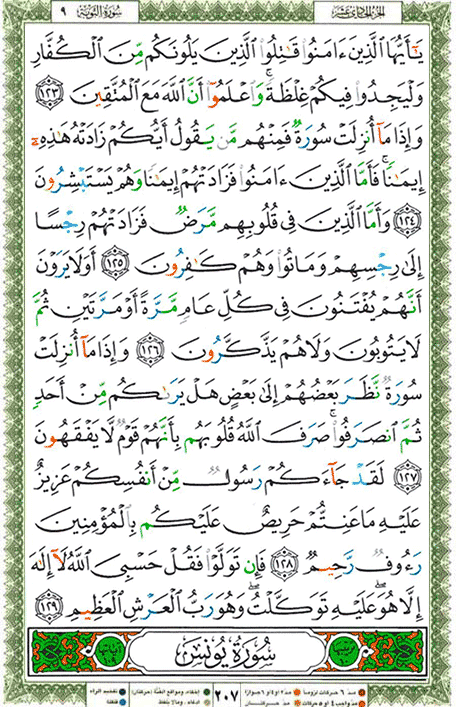 الجزء الحادي عشر ٩ سورة التوبة
يَٰٓأَيُّهَا ٱلَّذِينَ ءَامَنُوا۟ قَٰتِلُوا۟ ٱلَّذِينَ يَلُونَكُم مِّنَ ٱلْكُفَّارِ
وَلْيَجِدُوا۟ فِيكُمْ غِلْظَةً ۚ وَٱعْلَمُوٓا۟ أَنَّ ٱللَّهَ مَعَ ٱلْمُتَّقِينَ ١٢٣
وَإِذَا مَآ أُنزِلَتْ سُورَةٌ فَمِنْهُم مَّن يَقُولُ أَيُّكُمْ زَادَتْهُ هَٰذِهِۦٓ
إِيمَٰنًا ۚ فَأَمَّا ٱلَّذِينَ ءَامَنُوا۟ فَزَادَتْهُمْ إِيمَٰنًا وَهُمْ يَسْتَبْشِرُونَ
١٢٤ وَأَمَّا ٱلَّذِينَ فِى قُلُوبِهِم مَّرَضٌ فَزَادَتْهُمْ رِجْسًا
إِلَىٰ رِجْسِهِمْ وَمَاتُوا۟ وَهُمْ كَٰفِرُونَ ١٢٥ أَوَلَا يَرَوْنَ
أَنَّهُمْ يُفْتَنُونَ فِى كُلِّ عَامٍ مَّرَّةً أَوْ مَرَّتَيْنِ ثُمَّ
لَا يَتُوبُونَ وَلَا هُمْ يَذَّكَّرُونَ ١٢٦ وَإِذَا مَآ أُنزِلَتْ
سُورَةٌ نَّظَرَ بَعْضُهُمْ إِلَىٰ بَعْضٍ هَلْ يَرَىٰكُم مِّنْ أَحَدٍ
ثُمَّ ٱنصَرَفُوا۟ ۚ صَرَفَ ٱللَّهُ قُلُوبَهُم بِأَنَّهُمْ قَوْمٌ لَّا يَفْقَهُونَ
١٢٧ لَقَدْ جَآءَكُمْ رَسُولٌ مِّنْ أَنفُسِكُمْ عَزِيزٌ
عَلَيْهِ مَا عَنِتُّمْ حَرِيصٌ عَلَيْكُم بِٱلْمُؤْمِنِينَ
رَءُوفٌ رَّحِيمٌ ١٢٨ فَإِن تَوَلَّوْا۟ فَقُلْ حَسْبِىَ ٱللَّهُ لَآ إِلَٰهَ
إِلَّا هُوَ ۖ عَلَيْهِ تَوَكَّلْتُ ۖ وَهُوَ رَبُّ ٱلْعَرْشِ ٱلْعَظِيمِ ١٢٩
سُورَةُ يُونُسَ
٢٠٧
مد ٦ حركات لزوماً مد ٢ او ٤ او ٦ جوازاً
مد واجب ٤ او ٥ حركات مد حركتان
إخفاء، ومواقع الغنة (حركتان) تفخيم الراء
ادغام، وما لا يلفظ قلقلة